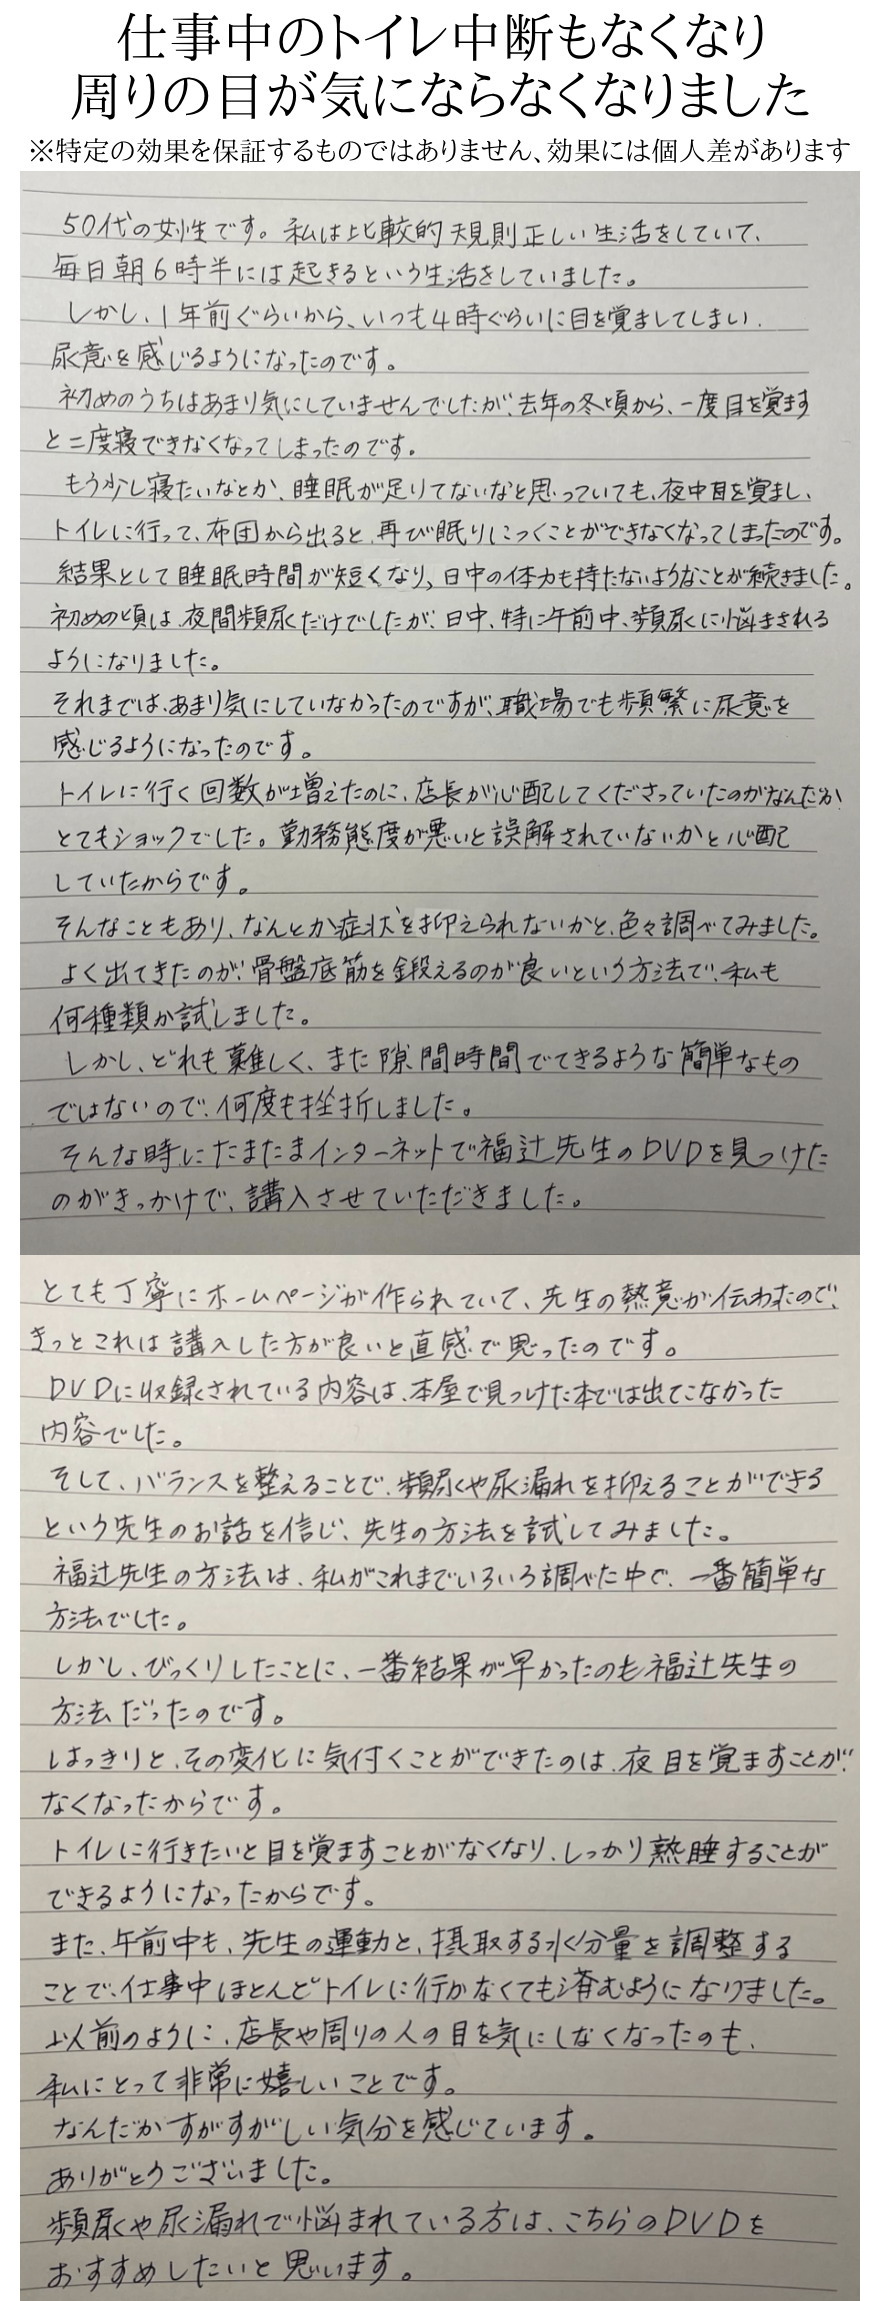 仕事中のトイレ中断もなくなり
周りの目が気にならなくなりました
※特定の効果を保証するものではありません、効果には個人差があります
50代の女性です。私は比較的規則正しい生活をしていて、
毎日朝6時半には起きるという生活をしていました。
しかし、1年前ぐらいから、いつも4時ぐらいに目を覚ましてしまい、
尿意を感じるようになったのです。
初めのうちはあまり気にしていませんでしたが、去年の冬頃から、一度目を覚ます
と二度寝できなくなってしまったのです。
もう少し寝たいなとか、睡眠が足りてないなと思っていても、夜中目を覚まし、
トイレに行って、布団から出ると、再び眠りにつくことができなくなってしまったのです。
結果として睡眠時間が短くなり、日中の体力も持たないようなことが続きました。
初めの頃は、夜間頻尿だけでしたが、日中、特に午前中、頻尿に悩まされる
ようになりました。
それまでは、あまり気にしていなかったのですが、職場でも頻繁に尿意を
感じるようになったのです。
トイレに行く回数が増えたのに、店長が心配してくださっていたのがなんだか
とてもショックでした。勤務態度が悪いと誤解されていないかと心配
していたからです。
そんなこともあり、なんとか症状を抑えられないかと、色々調べてみました。
よく出てきたのが、骨盤底筋を鍛えるのが良いという方法で、私も
何種類か試しました。
しかし、どれも難しく、また隙間時間でできるような簡単なもの
ではないので、何度も挫折しました。
そんな時にたまたまインターネットで福辻先生のDVDを見つけた
のがきっかけで、講入させていただきました。
とても丁寧にホームページが作られていて、先生の熱意が伝わたので、
きっとこれは講入した方が良いと直感で思ったのです。
DVDに収録されている内容は、本屋で見つけた本では出てこなかった
内容でした。
そして、バランスを整えることで、頻尿や尿漏れを抑えることができる
という先生のお話を信じ、先生の方法を試してみました。
福辻先生の方法は、私がこれまでいろいろ調べた中で、一番簡単な
方法でした。
しかし、びっくりしたことに、一番結果が早かったのも福辻先生の
方法だったのです。
はっきりと、その変化に気付くことができたのは、夜目を覚ますことが
なくなったからです。
トイレに行きたいと目を覚ますことがなくなり、しっかり熟睡することが
できるようになったからです。
また、午前中も、先生の運動と、摂取する水分量を調整する
ことで、仕事中ほとんどトイレに行かなくても済むようになりました。
以前のように、店長や周りの人の目を気にしなくなったのも、
私にとって非常に嬉しいことです。
なんだかすがすがしい気分を感じています。
ありがとうございました。
頻尿や尿漏れで悩まれている方は、こちらのDVDを
おすすめしたいと思います。